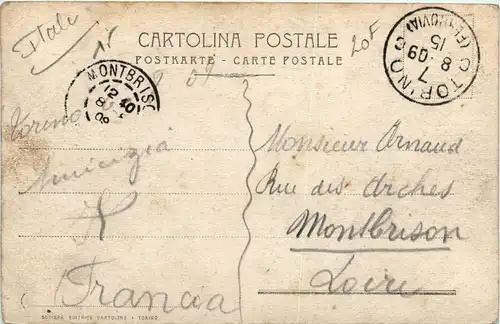 Italie
CARTOLINA POSTALE
POSTKARTE - CARTE POSTALE
20F
TORINO
(FERROVIA)
7
8 09
15
MONTBRISO
12 40
8
09
Torino
Amicizia
Francia
Monsieur Arnaud
Rue des Arches
Montbrison
Loire
SOCIETÀ EDITRICE CARTOLINE - TORINO